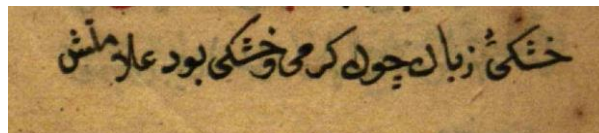 خشکئ زبان چون کرمی و خشکی بود علامتش